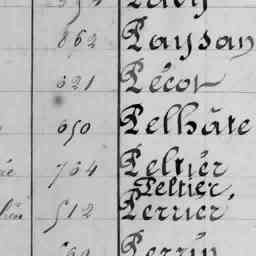 862 Paysan
621 Pécot
650 Pelhâte
764 Peltier
Peltier
512 Perrier
Perrin